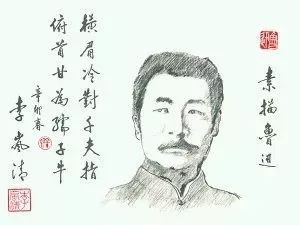 素描魯迅
橫眉冷對千夫指
俯首甘為孺子牛
辛卯春
李嵐清